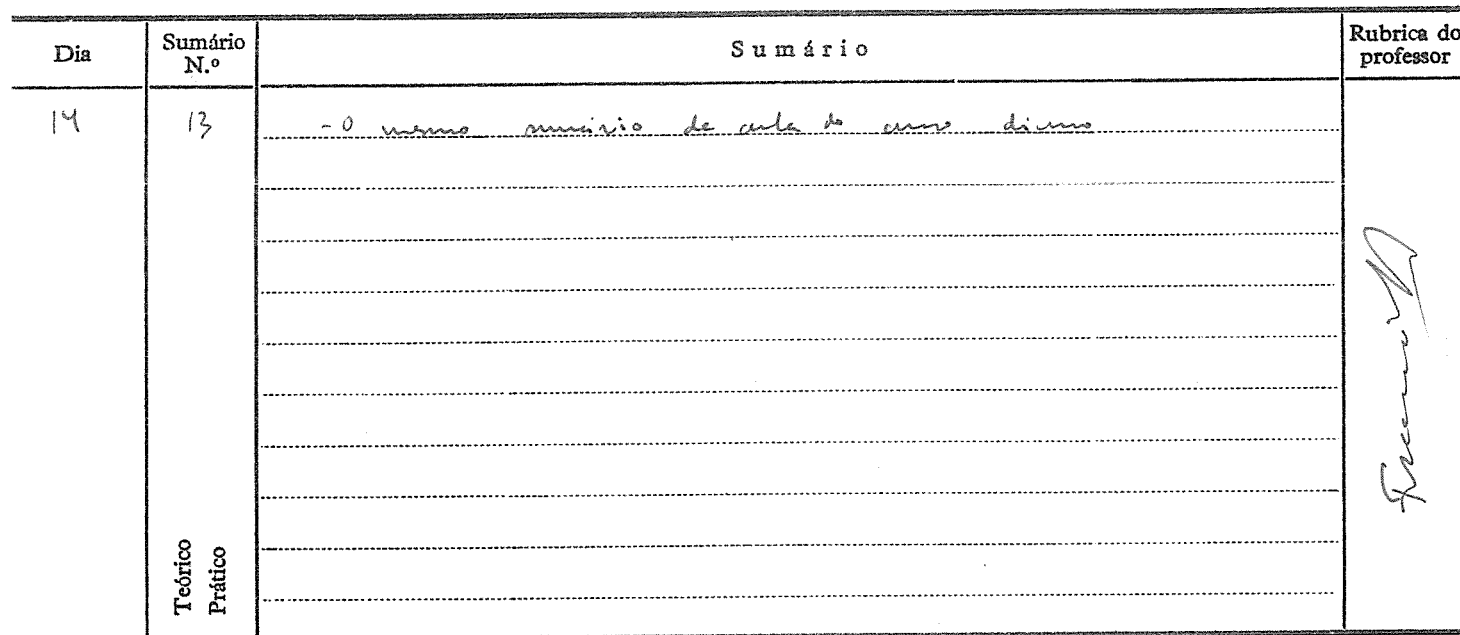 Dia
Sumário N.º
Sumário
Rubrica do professor
14
13
- O mesmo sumário de aula do curso diurno
Teórico
Prático